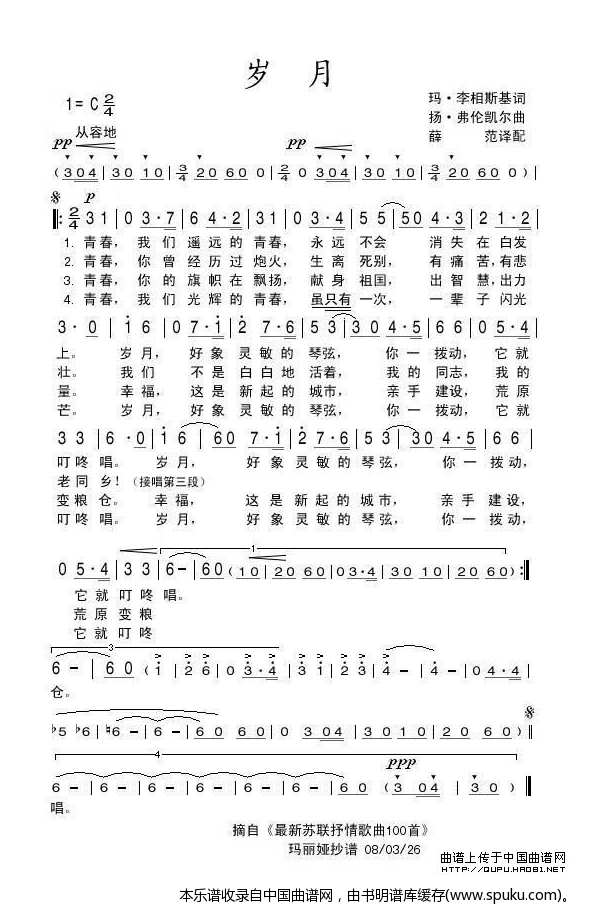 岁 月
1=C 2/4
玛·李相斯基词
扬·弗伦凯尔曲
薛 范译配
从容地
pp pp
(3 04 | 30 10 | 3/4 20 60 0 | 2/4 0 304 | 30 10 | 3/4 20 60 0)|
p
‖: 2/4 3 1 | 0 3·7 | 6 4·2 | 3 1 | 0 3·4 | 5 5 | 50 4·3 | 2 1·2 |
1. 青春， 我 们 遥 远 的 青春， 永 远 不会 消 失 在 白发
2. 青春， 你 曾 经 历 过 炮火， 生 离 死别， 有 痛 苦，有悲
3. 青春， 你 的 旗 帜 在 飘扬， 献 身 祖国， 出 智 慧，出力
4. 青春， 我 们 光 辉 的 青春， 虽只有 一次， 一 辈 子 闪光
3·0 | 1 6 | 0 7·1 | 2 7·6 | 5 3 | 3 0 4·5 | 6 6 | 0 5·4 |
上。 岁 月， 好 象 灵 敏 的 琴弦， 你 一 拨动， 它 就
壮。 我 们 不 是 白 白 地 活着， 我 的 同志， 我 的
量。 幸 福， 这 是 新 起 的 城市， 亲 手 建设， 荒 原
芒。 岁 月， 好 象 灵 敏 的 琴弦， 你 一 拨动， 它 就
3 3 | 6·0 | 1 6 | 60 7·1 | 2 7·6 | 5 3 | 30 4·5 | 6 6 |
叮咚 唱。 岁 月， 好 象 灵 敏 的 琴弦， 你 一 拨动，
老同 乡！(接唱第三段)
变粮 仓。 幸 福， 这 是 新 起 的 城市， 亲 手 建设，
叮咚 唱。 岁 月， 好 象 灵 敏 的 琴弦， 你 一 拨动，
1
0 5·4 | 3 3 | 6 - | 60 (10 | 20 60 | 03·4 | 30 10 | 20 60) :‖
它 就 叮 咚 唱。
荒 原 变 粮
它 就 叮 咚
3
6 - | 6 0 (1 | 2 6 | 0 3·4 | 3 1 | 2 3 | 6 - | 6 - | 0 4·4 |
仓。
♭5 ♭6 | ♮6 - | 6 - | 60 60 | 0 304 | 30 10 | 20 60) ‖
4
ppp
6 - | 6 - | 6 - | 6 - | 6 - | 6 - | 60 (3 | 04 30 | 0 0) ‖
唱。
摘自《最新苏联抒情歌曲100首》
玛丽娅抄谱 08/03/26
曲谱上传于中国曲谱网
http://QUPU.HAO81.NET
本乐谱收录自中国曲谱网，由书明谱库缓存(www.spuku.com)。